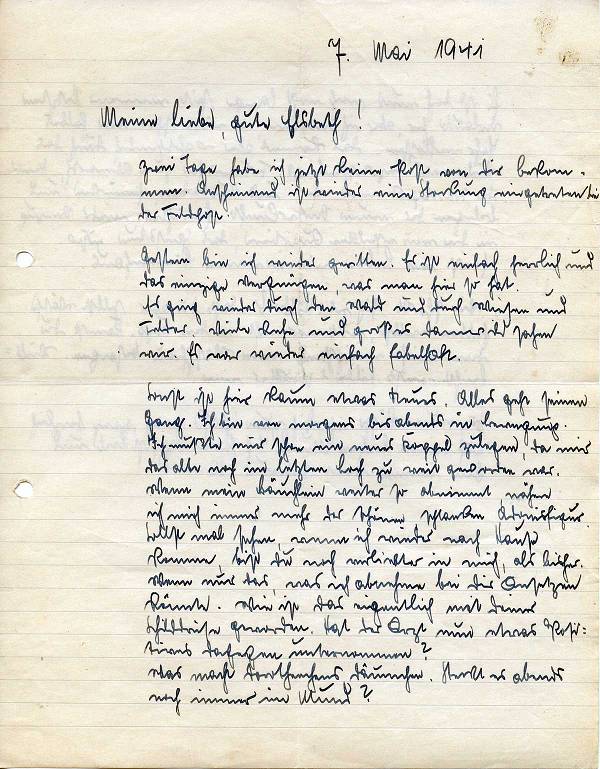 7. Mai 1941
Meine liebe, gute Elsbeth!
Zwei Tage habe ich jetzt keine Post von Dir bekom-
men. Anscheinend ist wieder eine Störung eingetreten bei
der Feldpost.
Gestern bin ich wieder geritten. Es ist einfach herrlich und
das einzige Vergnügen, was man hier so hat.
Es ging wieder durch den Wald und durch Wiesen und
Felder. Viele Rehe und großes Damwild sahen
wir. Es war wieder einfach fabelhaft.
Sonst ist hier kaum etwas Neues. Alles geht seinen
Gang. Ich bin von morgens bis abends in Bewegung.
Ich mußte mir schon ein neues Koppel zulegen, da mir
das alte noch im letzten Loch zu weit geworden war.
Wenn mein Bäuchlein weiter so abnimmt, nähere
ich mich immer mehr der schönen schlanken Adonisfigur.
Sollst mal sehen, wenn ich wieder nach Hause
komme, bist Du noch verliebter in mich, als bisher.
Wenn nur das, was ich abnehme bei Dir ansetzen
könnte. Wie ist das eigentlich mit Deiner
Schilddrüse geworden. Hat der Arzt nun etwas Posi-
tives dagegen unternommen?
Was macht Dorthchens Däumchen. Steckt es abends
noch immer im Mund?